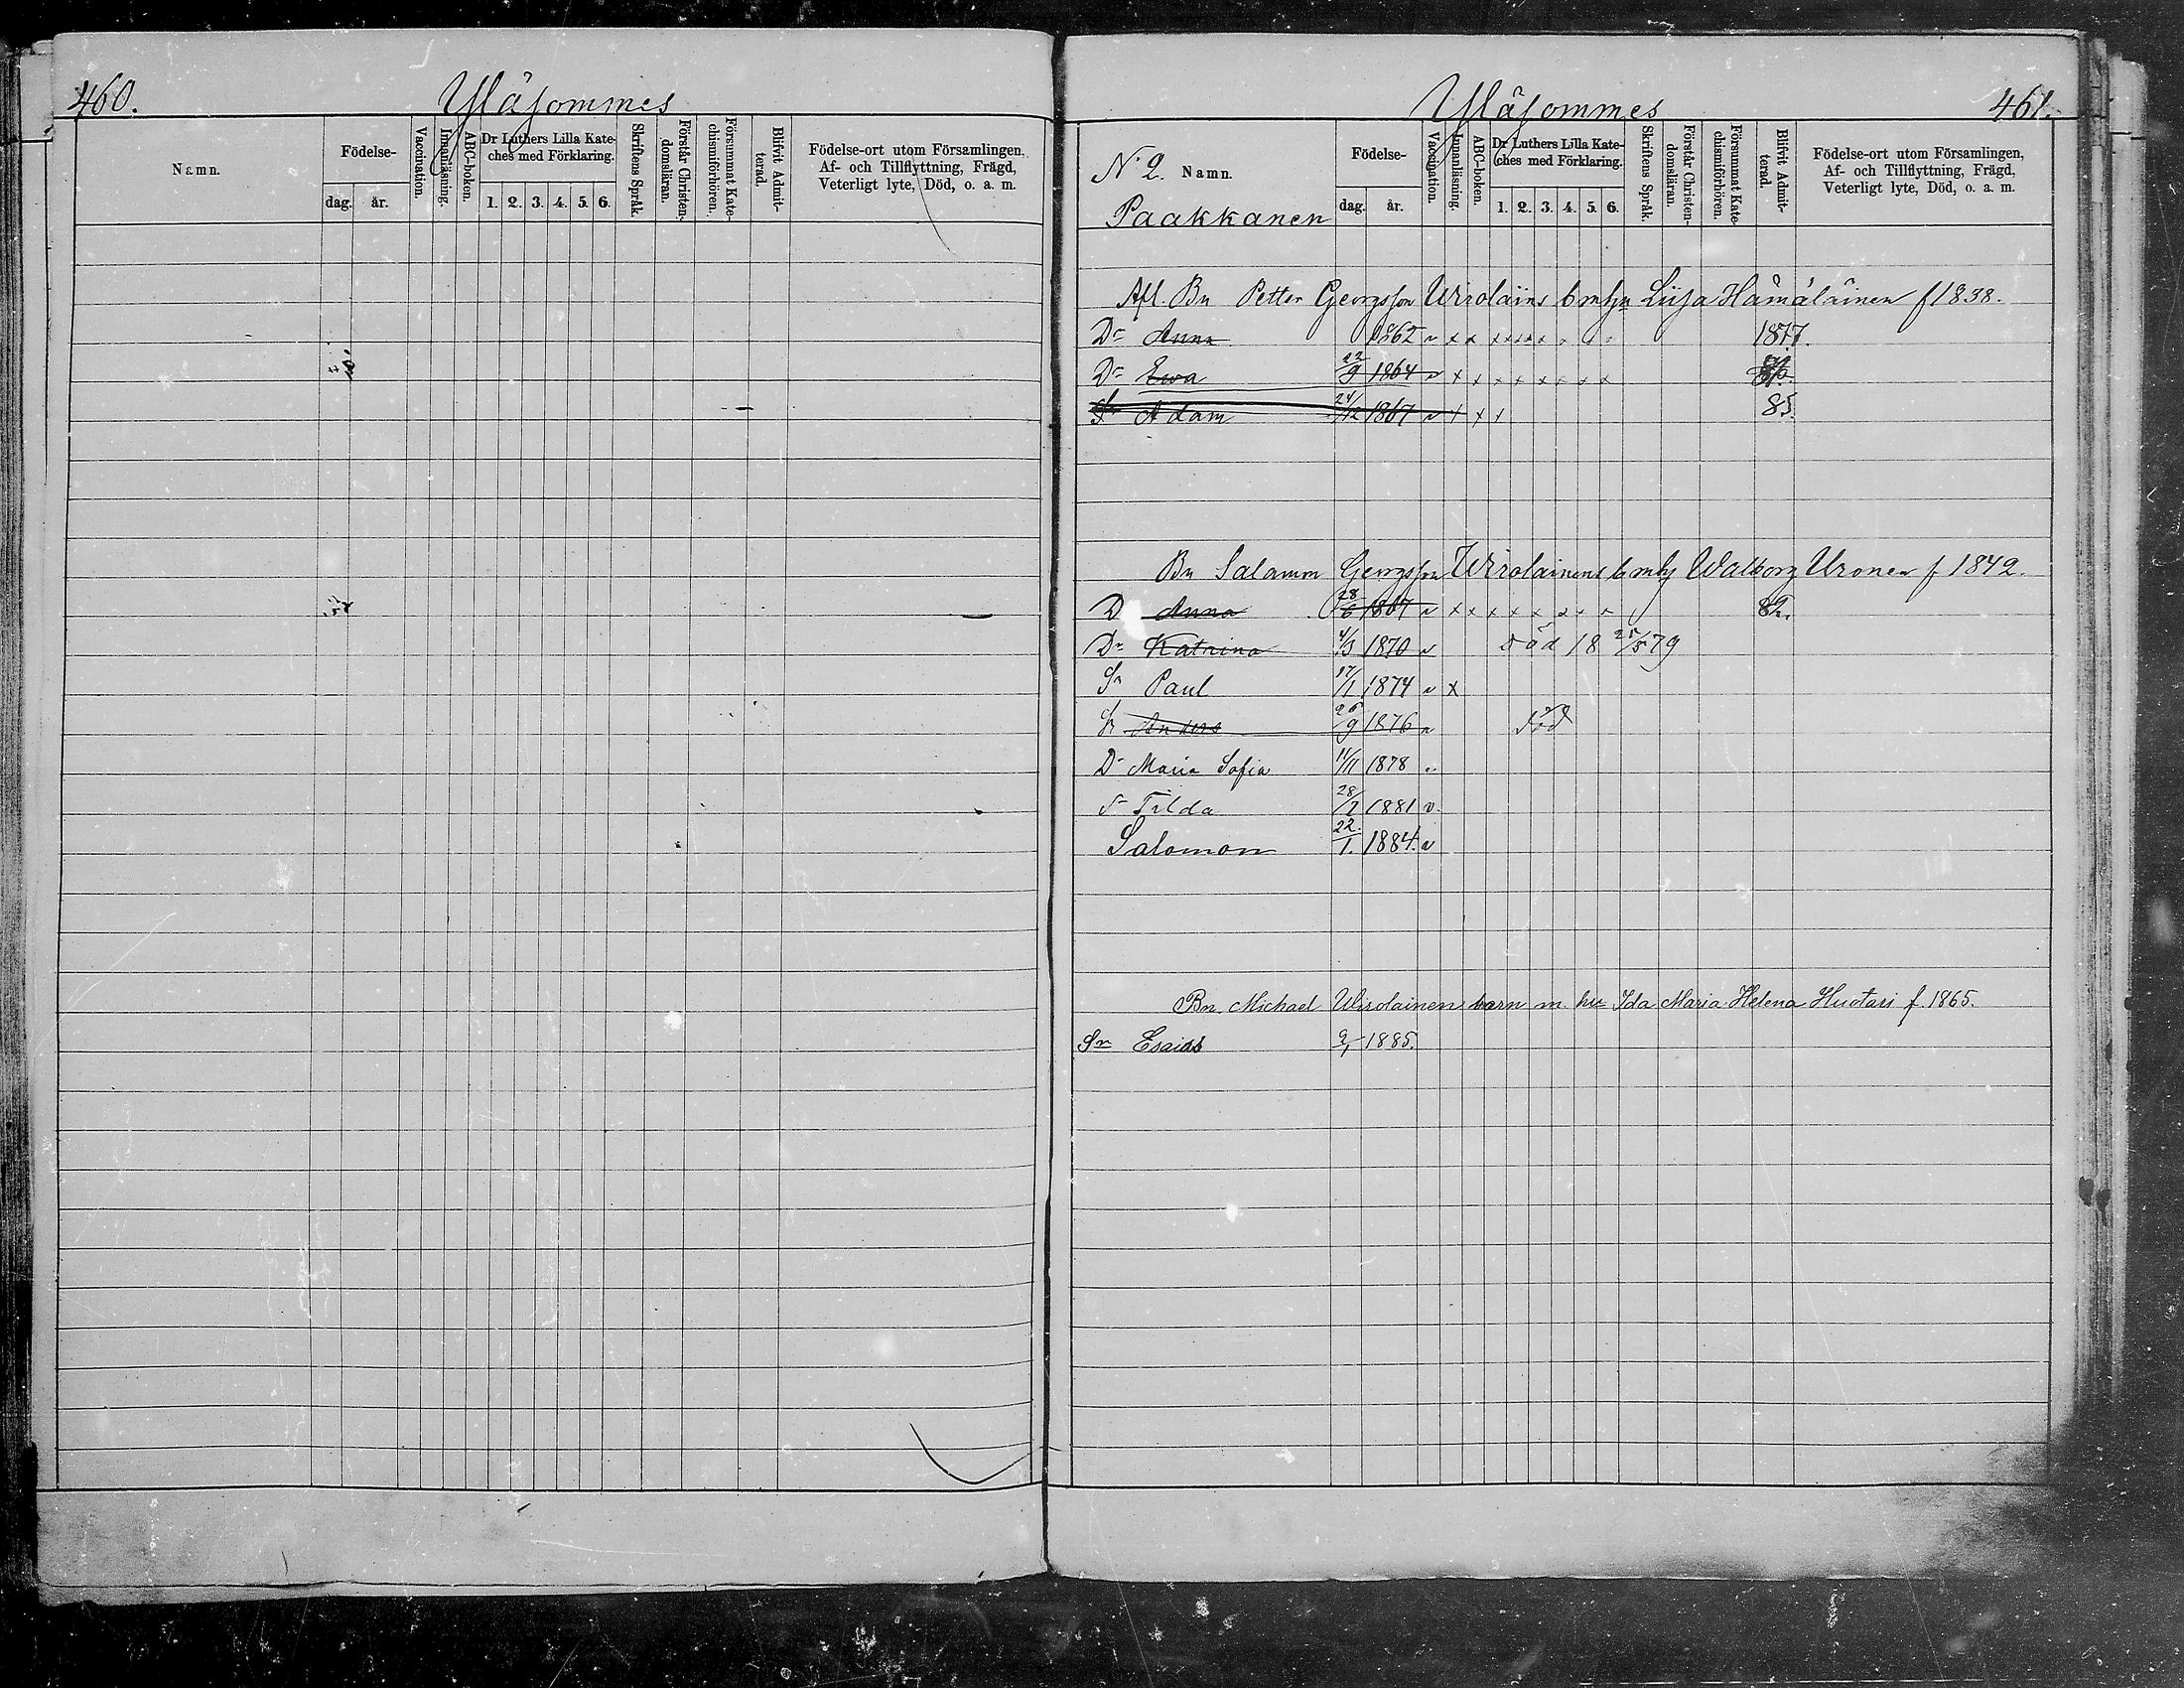 460.
Yläsommes
Namn.
Födelse-
dag. år.
Vaccination.
Innanläsning.
ABC-boken.
Dr Luthers Lilla Kate-
ches med Förklaring.
1. 2. 3. 4. 5. 6.
Skriftens Språk.
Förstår Christen-
domsläran.
Försummat Kate-
chismiförhören.
Blifvit Admit-
terad.
Födelse-ort utom Församlingen,
Af- och Tillflyttning, Frägd,
Veterligt lyte, Död, o. a. m.
Yläsommes
461.
N:o 2. Namn.
Paakkanen
Födelse-
dag. år.
Vaccination.
Innanläsning.
ABC-boken.
Dr Luthers Lilla Kate-
ches med Förklaring.
1. 2. 3. 4. 5. 6.
Skriftens Språk.
Förstår Christen-
domsläran.
Försummat Kate-
chismiförhören.
Blifvit Admit-
terad.
Födelse-ort utom Församlingen,
Af- och Tillflyttning, Frägd,
Veterligt lyte, Död, o. a. m.
Afl. Bn Petter Georgsson Wirolains b m hu Liisa Hämäläinen f 1838.
Dr Anna 1862 v x x x x x x x 1877.
Dr Ewa 22/9 1864 v x x x x x x x x
Sn Adam 24/12 1867 v x x x 85.
Bn Salamon Georgsson Wirolainens b m hu Walborg Uronen f 1842.
Dr Anna 28/6 1867 v x x x x x x x x 82.
Dr Katrina 4/3 1870 v död 18 25/5 79
Sn Paul 17/1 1874 v x
Sn Anders 26/9 1876 v död
Dr Maria Sofia 11/11 1878 v
Dr Tilda 28/7 1881 v.
Salomon 22./1. 1884. v
Bn. Michael Wirolainens barn m. hu Ida Maria Helena Huotari f. 1865.
Sn Esaias 1885.